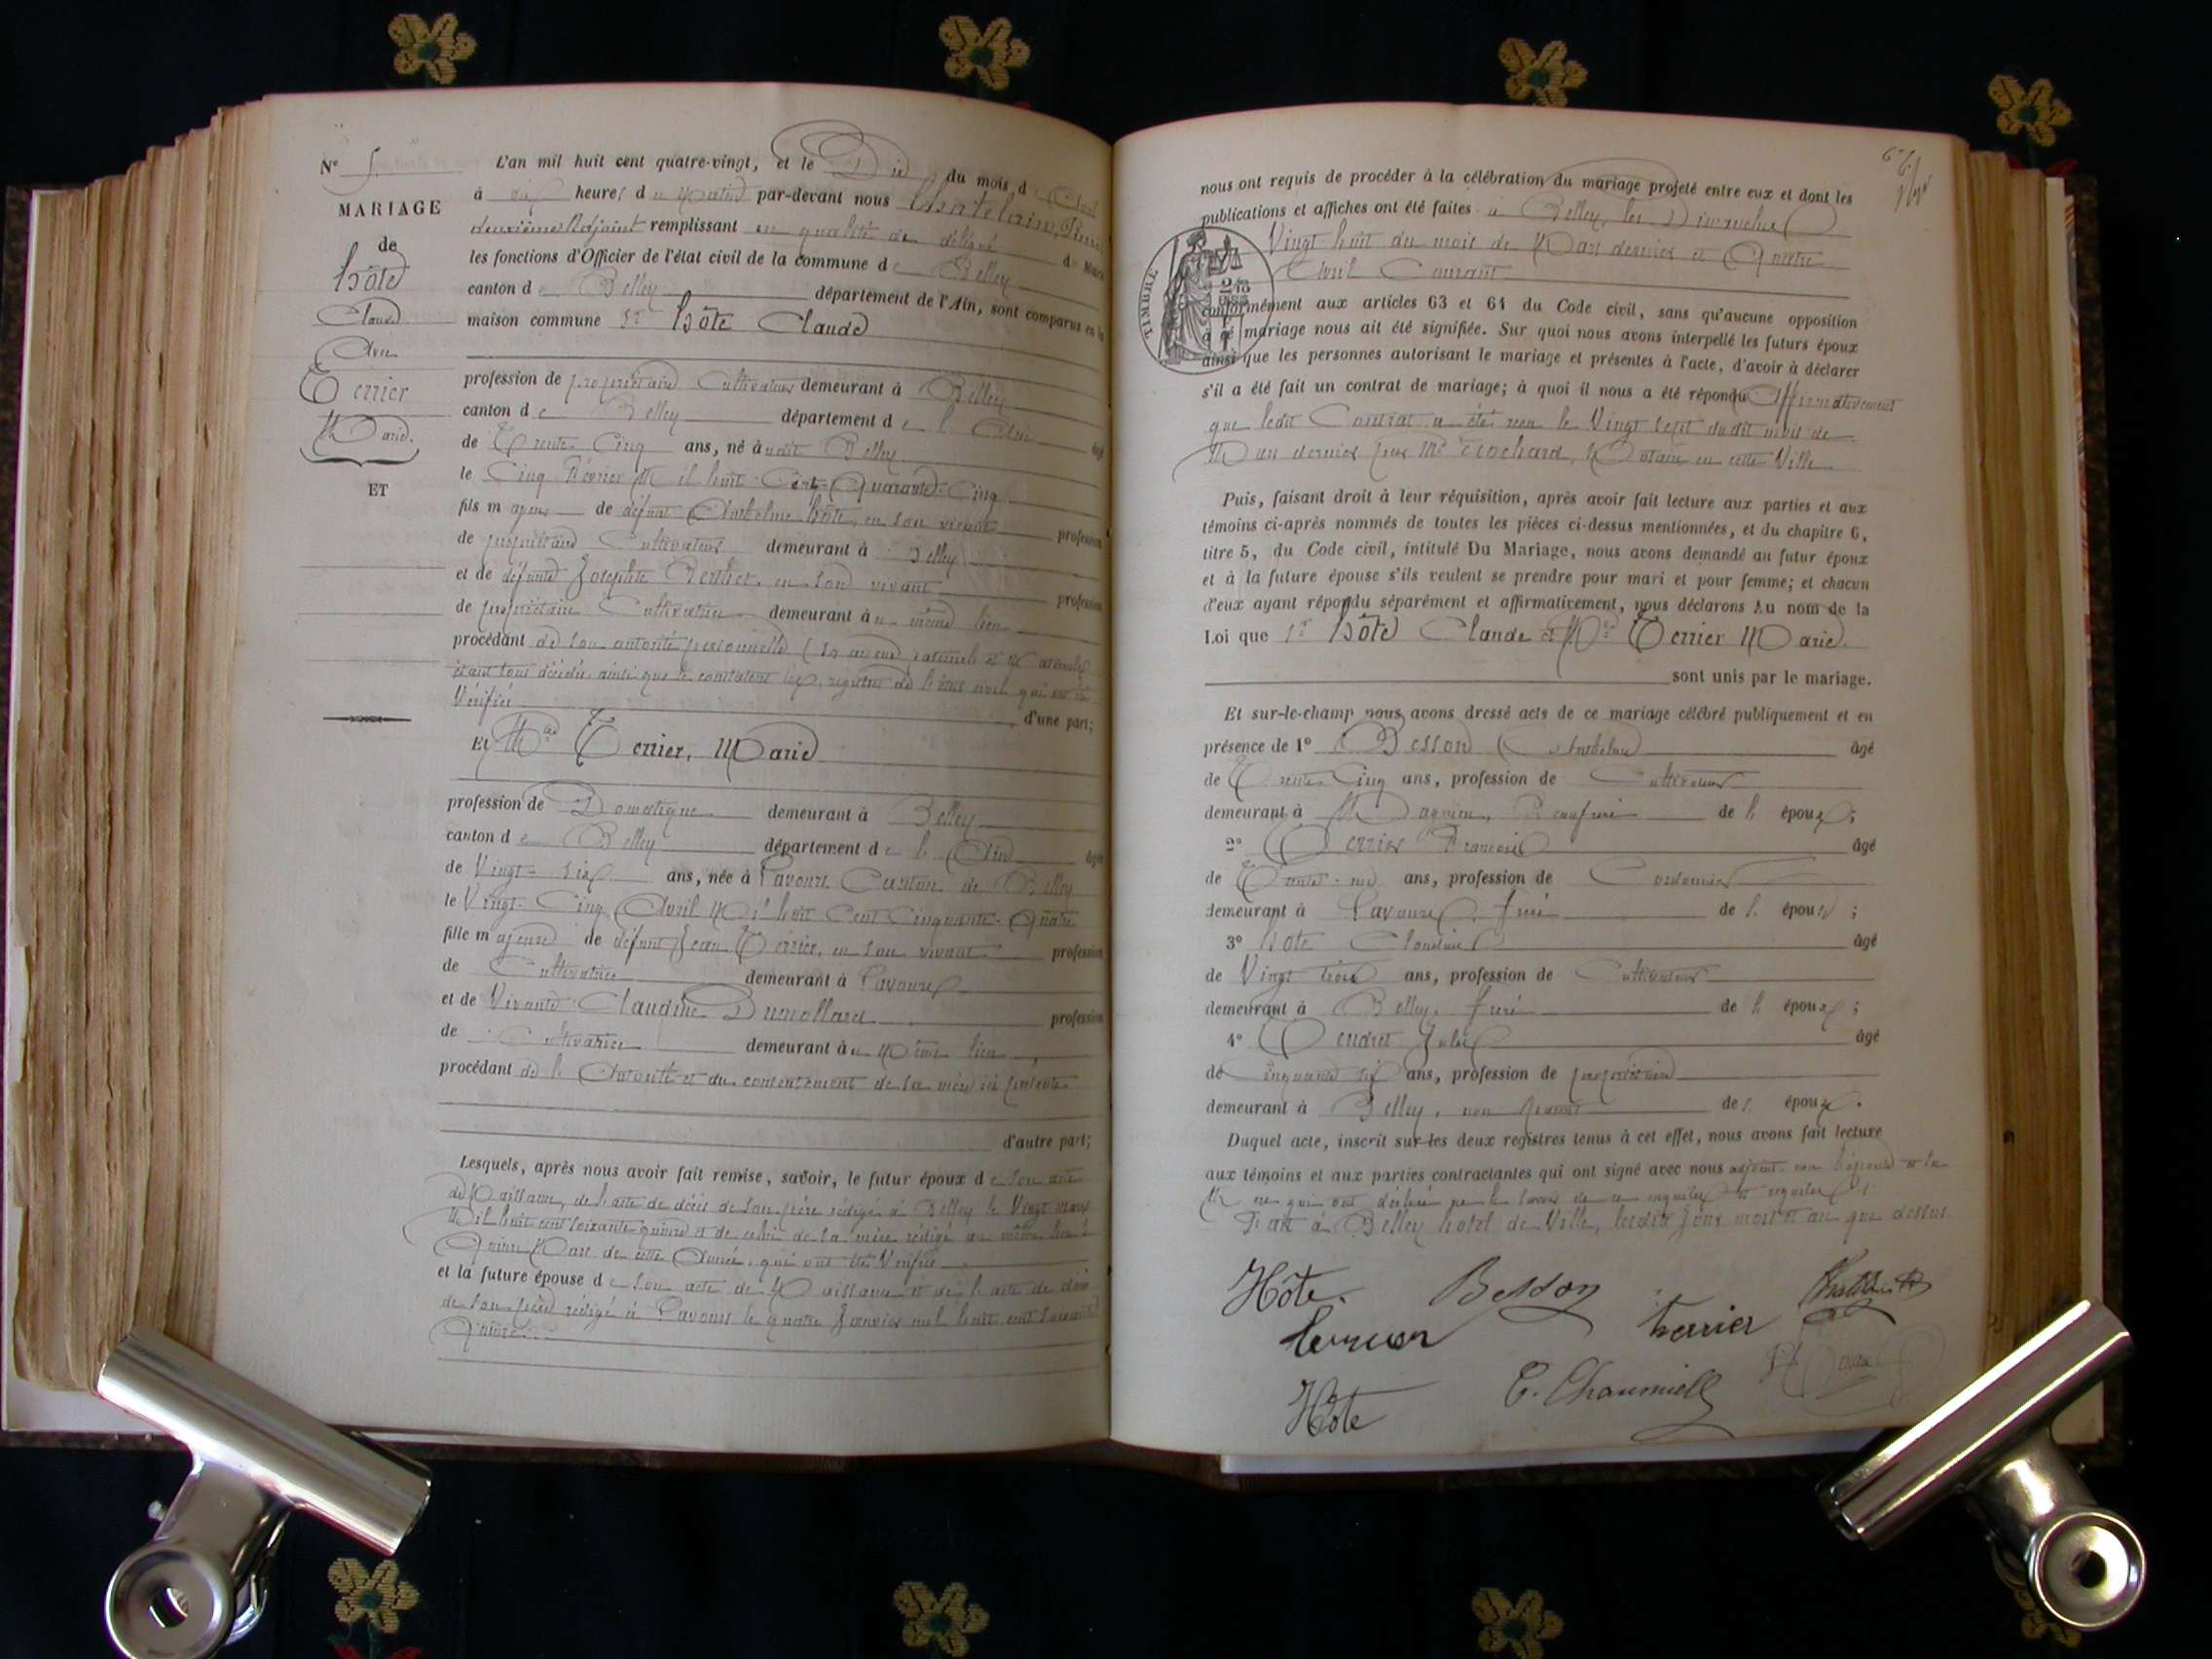 N° 5.
MARIAGE
de
hôte
Claude
Avec
Terrier
Marie.
ET
L'an mil huit cent quatre-vingt, et le Dix du mois d'
à dix heures du Matin par-devant nous Chatelain,
deuxième Adjoint remplissant en qualité de délégué du Maire
les fonctions d'Officier de l'état civil de la commune de Belley
canton de Belley département de l'Ain, sont comparus en la
maison commune Sr hôte Claude
profession de propriétaire Cultivateur demeurant à Belley
canton de Belley département de l'Ain âgé
de Trente Cinq ans, né audit Belley
le Cinq Février Mil huit Cent Quarante-Cinq
fils majeur de défunt Anthelme hôte, en son vivant profession
de propriétaire Cultivateur demeurant à Belley
et de défunte Josephte Berthet, en son vivant profession
de propriétaire Cultivatrice demeurant au même lieu
procédant de son autorité personnelle (ses ayeux paternels et Maternels
étant tous décédés ainsi que le constatent les registres de l'état civil, qui ont été
Vérifiés d'une part;
Et Melle Terrier, Marie
profession de Domestique demeurant à Belley
canton de Belley département de l'Ain âgée
de Vingt-six ans, née à Lavours Canton de Belley
le Vingt-Cinq Avril Mil huit Cent Cinquante-Quatre
fille majeure de défunt Jean Terrier, en son vivant profession
de Cultivatrice demeurant à Lavours
et de Vivante Claudine Dumollard profession
de Cultivatrice demeurant au Même lieu,
procédant de l'Autorité et du consentement de sa mère ici présente
d'autre part;
Lesquels, après nous avoir fait remise, savoir, le futur époux de son acte
de Naissance, de l'acte de décès de son père rédigé à Belley le Vingt mars
Mil huit cent soixante quinze et de celui de sa mère rédigé au même lieu le
Quinze Mars de cette Année, qui ont été Vérifiés
et la future épouse de son acte de Naissance et de l'acte de décès
de son père rédigé à Lavours le quatre Janvier mil huit cent soixante
Quinze
nous ont requis de procéder à la célébration du mariage projeté entre eux et dont les
publications et affiches ont été faites à Belley, les Dimanches
Vingt-huit du mois de Mars dernier et Quatre
Avril Courant
TIMBRE
conformément aux articles 63 et 64 du Code civil, sans qu'aucune opposition
à ce mariage nous ait été signifiée. Sur quoi nous avons interpellé les futurs époux
ainsi que les personnes autorisant le mariage et présentes à l'acte, d'avoir à déclarer
s'il a été fait un contrat de mariage; à quoi il nous a été répondu Affirmativement
que ledit Contrat a été reçu le Vingt sept dudit mois de
Mars dernier par Me Trochard, Notaire en cette Ville
Puis, faisant droit à leur réquisition, après avoir fait lecture aux parties et aux
témoins ci-après nommés de toutes les pièces ci-dessus mentionnées, et du chapitre 6,
titre 5, du Code civil, intitulé Du Mariage, nous avons demandé au futur époux
et à la future épouse s'ils veulent se prendre pour mari et pour femme; et chacun
d'eux ayant répondu séparément et affirmativement, nous déclarons Au nom de la
Loi que Sr hôte Claude et Melle Terrier Marie.
sont unis par le mariage.
Et sur-le-champ nous avons dressé acte de ce mariage célébré publiquement et en
présence de 1° Besson Anthelme âgé
de Trente Cinq ans, profession de Cultivateur
demeurant à Magnieu, Beaufrère de l'époux;
2° Terrier François âgé
de Trente-un ans, profession de Cordonnier
demeurant à Lavours, frère de l'épouse;
3° hôte Claudius âgé
de Vingt trois ans, profession de Cultivateur
demeurant à Belley, frère de l'époux;
4° Jules âgé
de Cinquante six ans, profession de propriétaire
demeurant à Belley, non parent des époux.
Duquel acte, inscrit sur les deux registres tenus à cet effet, nous avons fait lecture
aux témoins et aux parties contractantes qui ont signé avec nous adjoint, non l'épouse et la
Mère qui ont déclaré ne le savoir de ce enquises et requises
Fait à Belley hotel de Ville, lesdits jour, mois et an que dessus
Hôte. Besson
terrier
Hôte